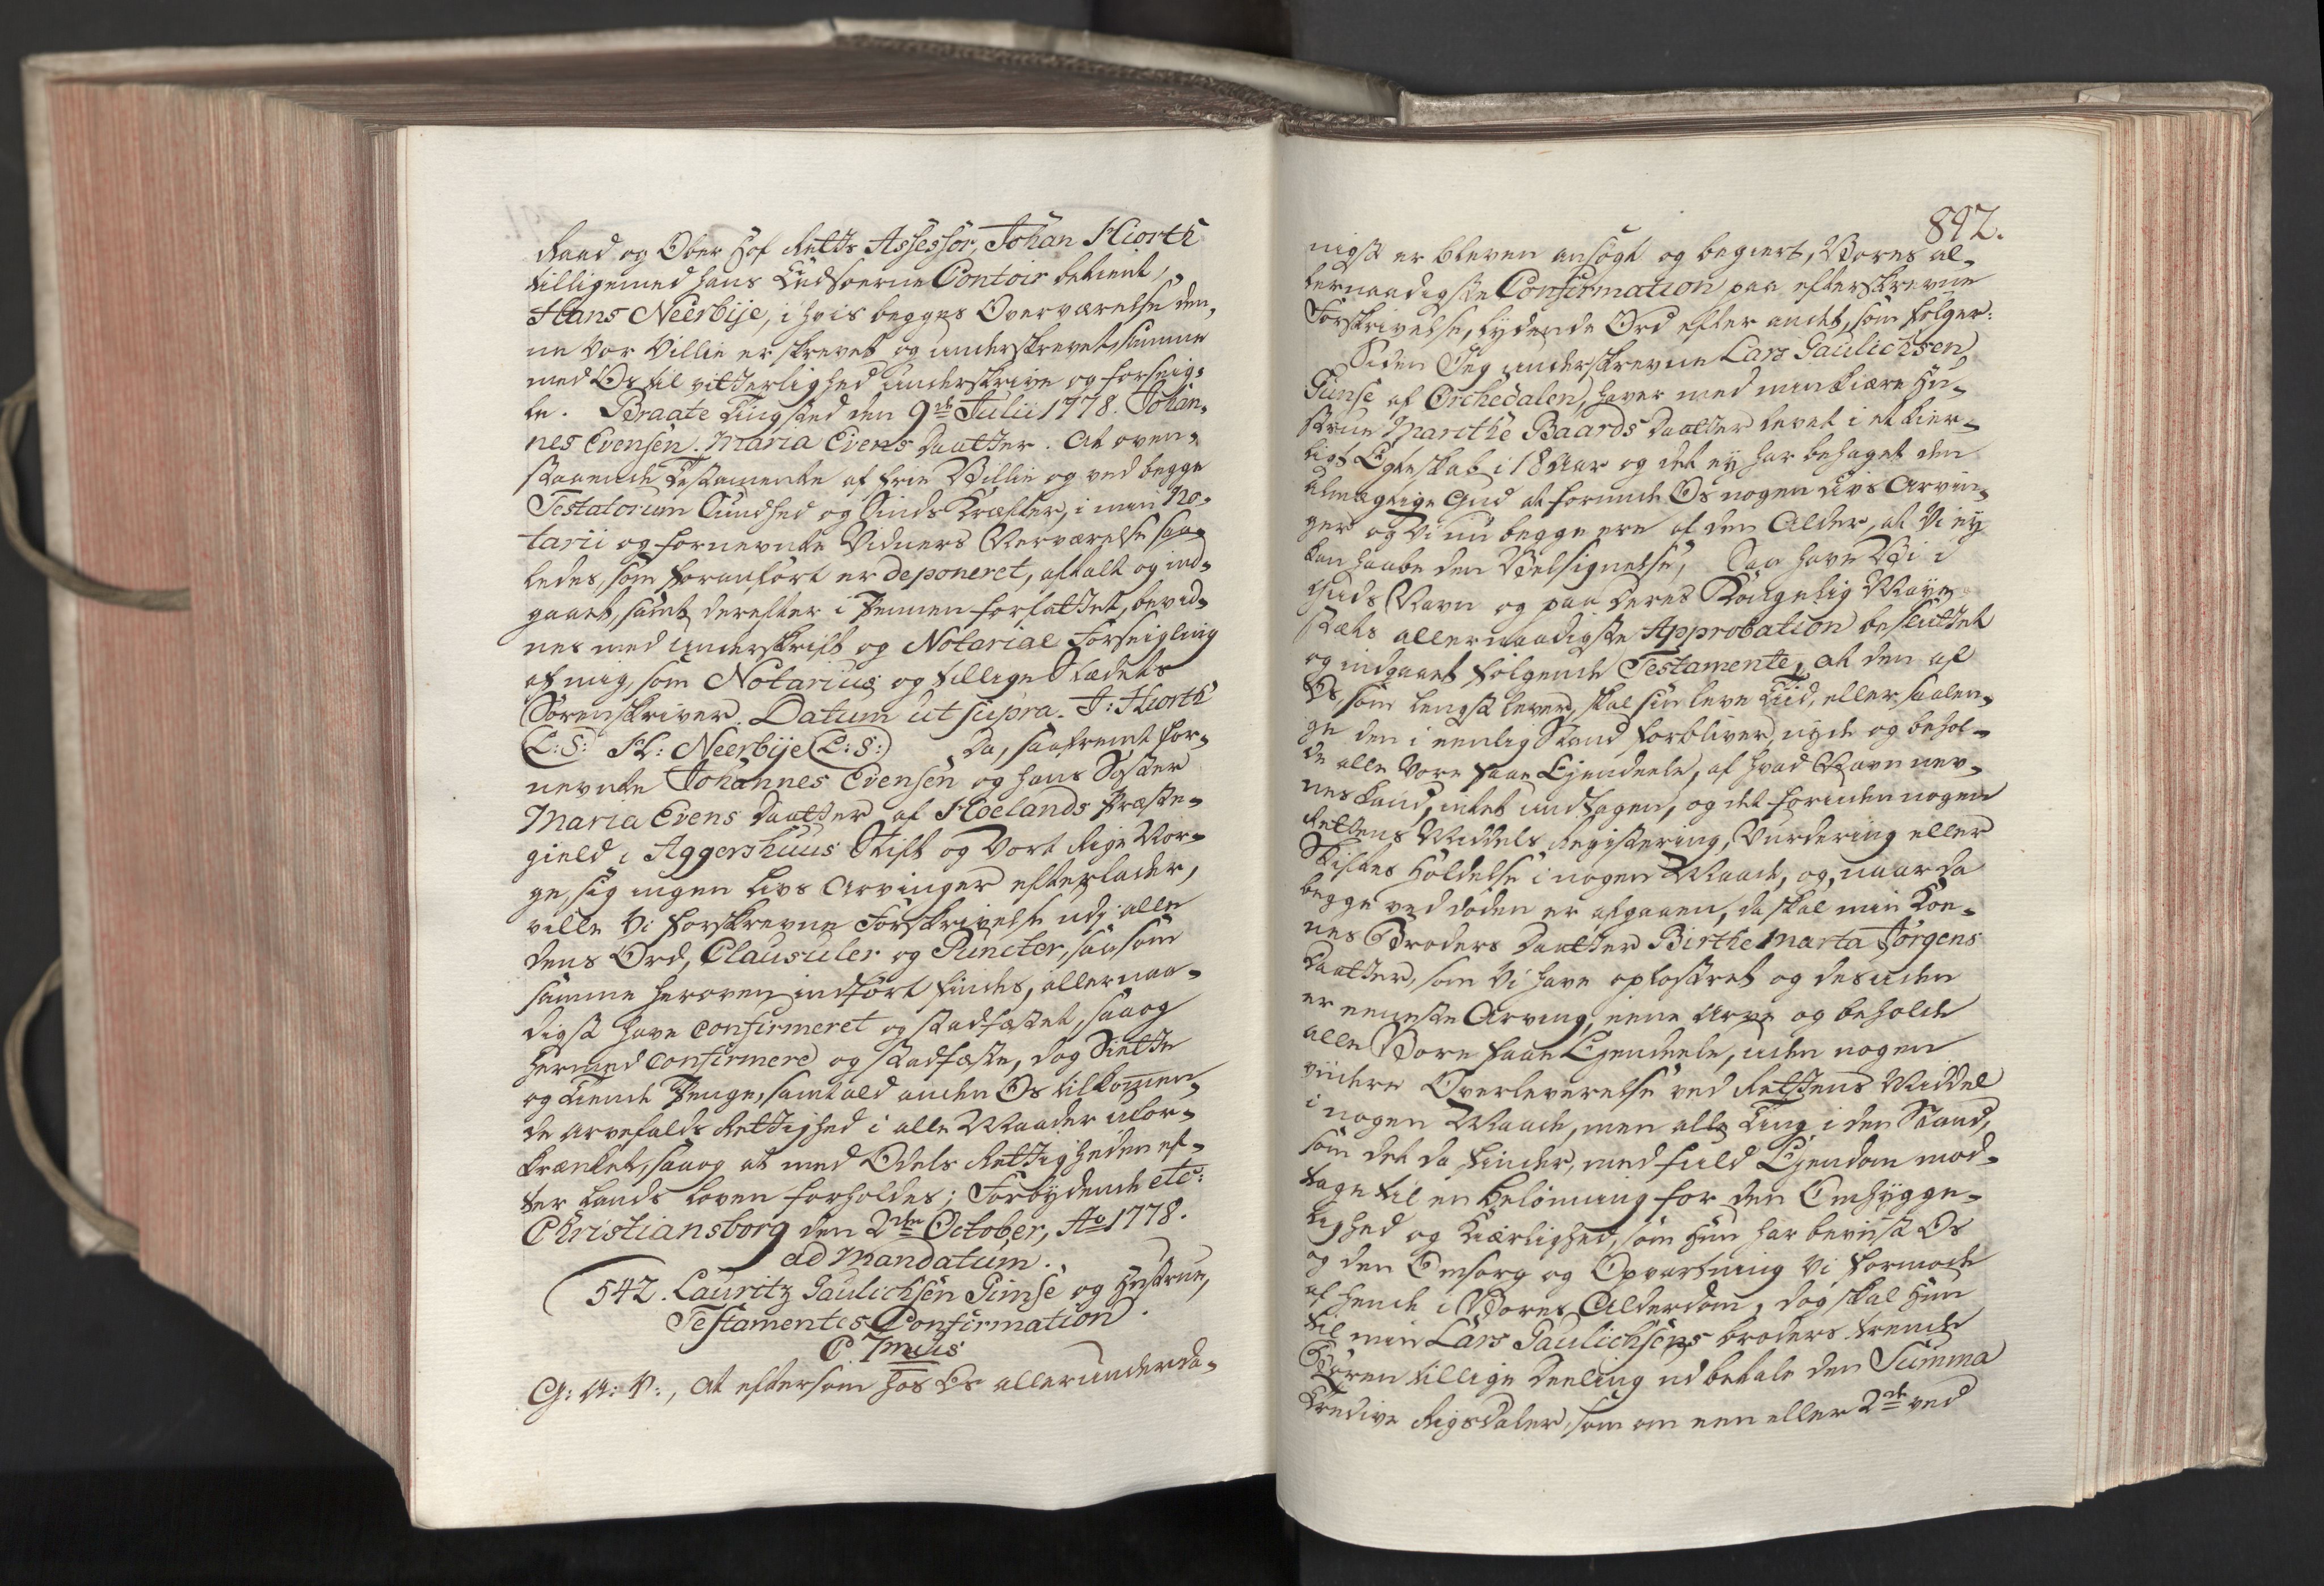 Raad og Ober Hof Retts Assessor, Johan Hiorth
tilligemed hans Tiidsverne Contoir betient,
Hans Neerbije, i hvis begges Overværelse den-
ne Vor Villie er skrevet og underskrevet, samme
med Os til vitterlighed underskrive og forseig-
le. Braate Tingsted den 9de Julii 1778. Johan-
nes Evensen. Maria Evens Daatter. At oven-
staaende Testamente af frie Villie og ved begge
Testatorum Sundhed og Sinds Kræfter, i min No-
tarii og fornevnte Vidners Nerværelse saa-
ledes, som foranført er deponeret, aftalt og ind-
gaaet, samt derefter i Pennen forfattet, bevid-
nes med Underskrift og Notarial Forseigling
af mig, som Notarius og tillige Stædets
Sorenskriver. Datum ut supra. J: Hiorth
(L:S:) H: Neerbije (L:S:) Da, saafremt for-
nevnte Johannes Evensen og hans Søster
Maria Evens Daatter af Hoelands Præste-
gield i Aggershuus Stift og Vort Rige Nor-
ge, sig ingen Livs Arvinger efterlader,
ville Vi forskrevne Forskrivelse udj alle
dens Ord, Clausuler og Puncter, saasom
samme herovenindført findes, allernaa-
digst have confirmeret og stadfæstet, saa og
hermed confirmere og stadfæste, dog Siette
og Tiende Penge, samt ald anden Os tilkommen-
de Arvefalds Rettighed i alle Maader ufor-
krænket, saa og at med Odels Rettigheden ef-
ter Lands Loven forholdes; Forbydende etc:
Christiansborg den 2den October, Ao 1778.
ad Mandatum.
542. Lauritz Gaulichsen Gimse og Hustrue,
Testamentes Confirmation.
C 7mus
G: A: V:, At eftersom hos Os allerunderda-
892.
nigst er bleven ansøgt og begiert, Vores al-
lernaadigste Confirmation paa efterskrevne
Forskrivelse, lydende Ord efter andet, som følger:
Siden Jeg underskrevne Lars Gaulichsen
Gimse af Orchedalen, haver med min kiære Hu-
strue Marithe Baards Daatter levet i et kier-
ligt Egteskab i 18 Aar og det ey har behaget den
Almægtige Gud at forunde Os nogen Livs Arvin-
ger og Vi nu begge ere af den Alder, at Vi ey
kan haabe den Velsignelse, Saa have Vi i
Guds Navn og paa Deres Kongelig Maye-
stæts allernaadigste Approbation besluttet
og indgaaet følgende Testamente, at den af
Os, som lengst lever, skal sin leve Tiid, eller saalen-
ge den i eenlig Stand forbliver, nyde og behol-
de alle Vore faae Ejendeele, af hvad Navn nev-
nes kand, intet undtagen, og det foruden nogen
Rettens Middels Registering, Vurdering eller
Skiftes Holdelse i nogen Maade, og, naar da
begge ved døden er afgaaen, da skal min Ko-
nes Broders Daatter Birthe Marta Jørgens
Daatter, som Vi have opfostret og desuden
er eeneste Arving, eene Arve og beholde
alle Vore faae Ejendeele, uden nogen
viidere Overleverelse ved Rettens Middel
i nogen Maade, men alle Ting i den Stand,
som det da findes, med fuld Ejendom mod-
tage til en Belønning for den Omhygge-
lighed og Kiærlighed, som Hun har beviist Os
og den Omsorg og Opvartning Vi formode
af hende i Vores Alderdom, dog skal Hun
til min Lars Gaulichsens broders trende
Børen tillige Deeling udbetale den Summa
Tredive Rigsdaler, som om een eller 2de ved